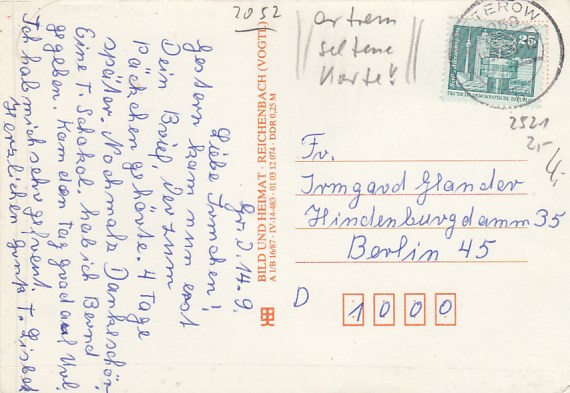 2052
extrem
seltene
Karte!
TEROW
25
2521
2,-
4,-
Gr. d. 14.9.
Liebe Irmchen!
Gestern kam nun erst
Dein Brief, der zum
Päckchen gehörte. 4 Tage
später. Nochmals Dankeschön
Eine T. Schokol. hab ich Bernd
gegeben. Kam den Tag grad auf Url.
Ich hab mich sehr gefreut.
Herzlichen Gruß T. Lisbet
BILD UND HEIMAT · REICHENBACH (VOGTL)
A 1/B 16/87 · IV-14-483 · 01 03 12 074 · DDR 0,25 M
Fr.
Irmgard Glander
Hindenburgdamm 35
Berlin 45
D 1000